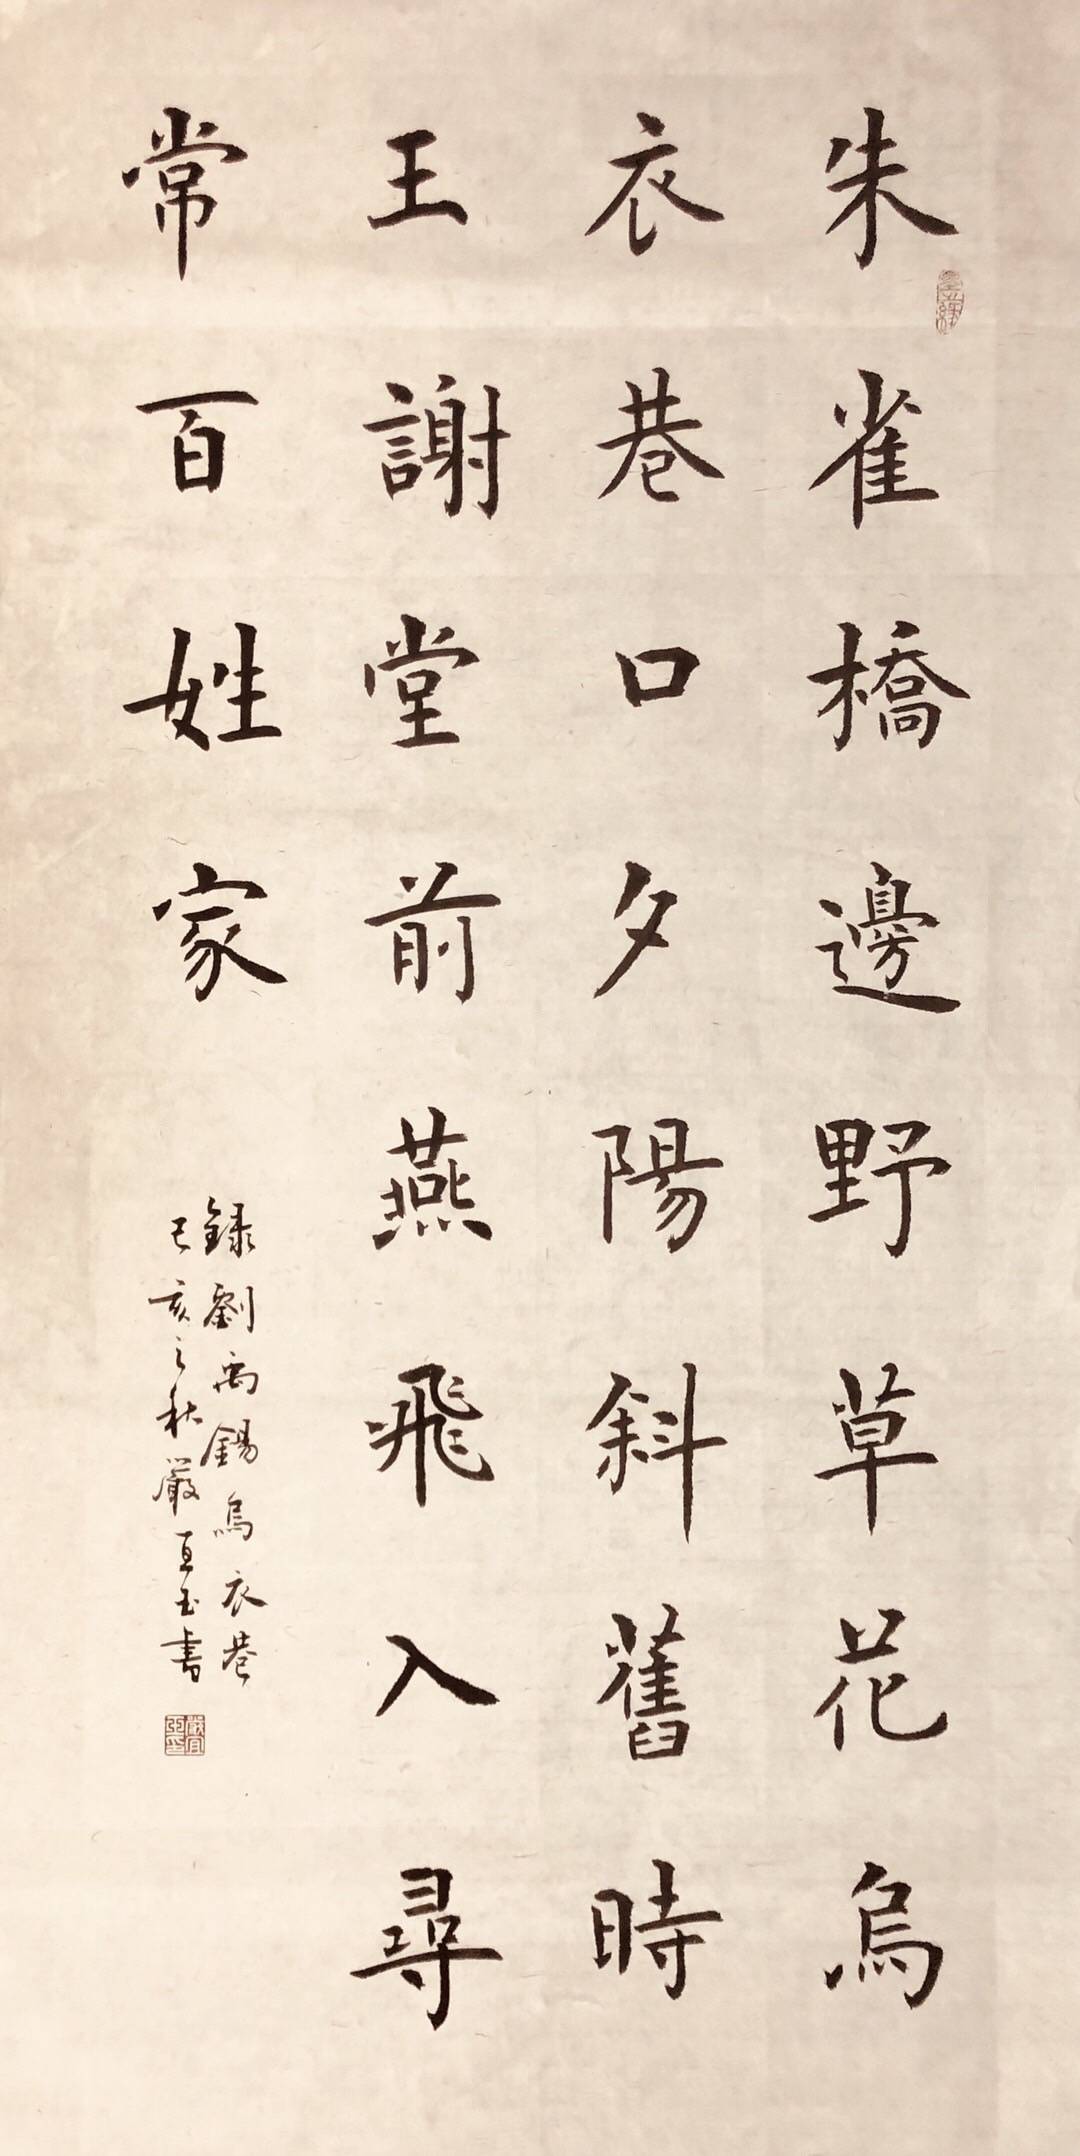 朱雀橋邊野草花烏
衣巷口夕陽斜舊時
王謝堂前燕飛入尋
常百姓家
錄劉禹錫烏衣巷
己亥之秋嚴亘玉書